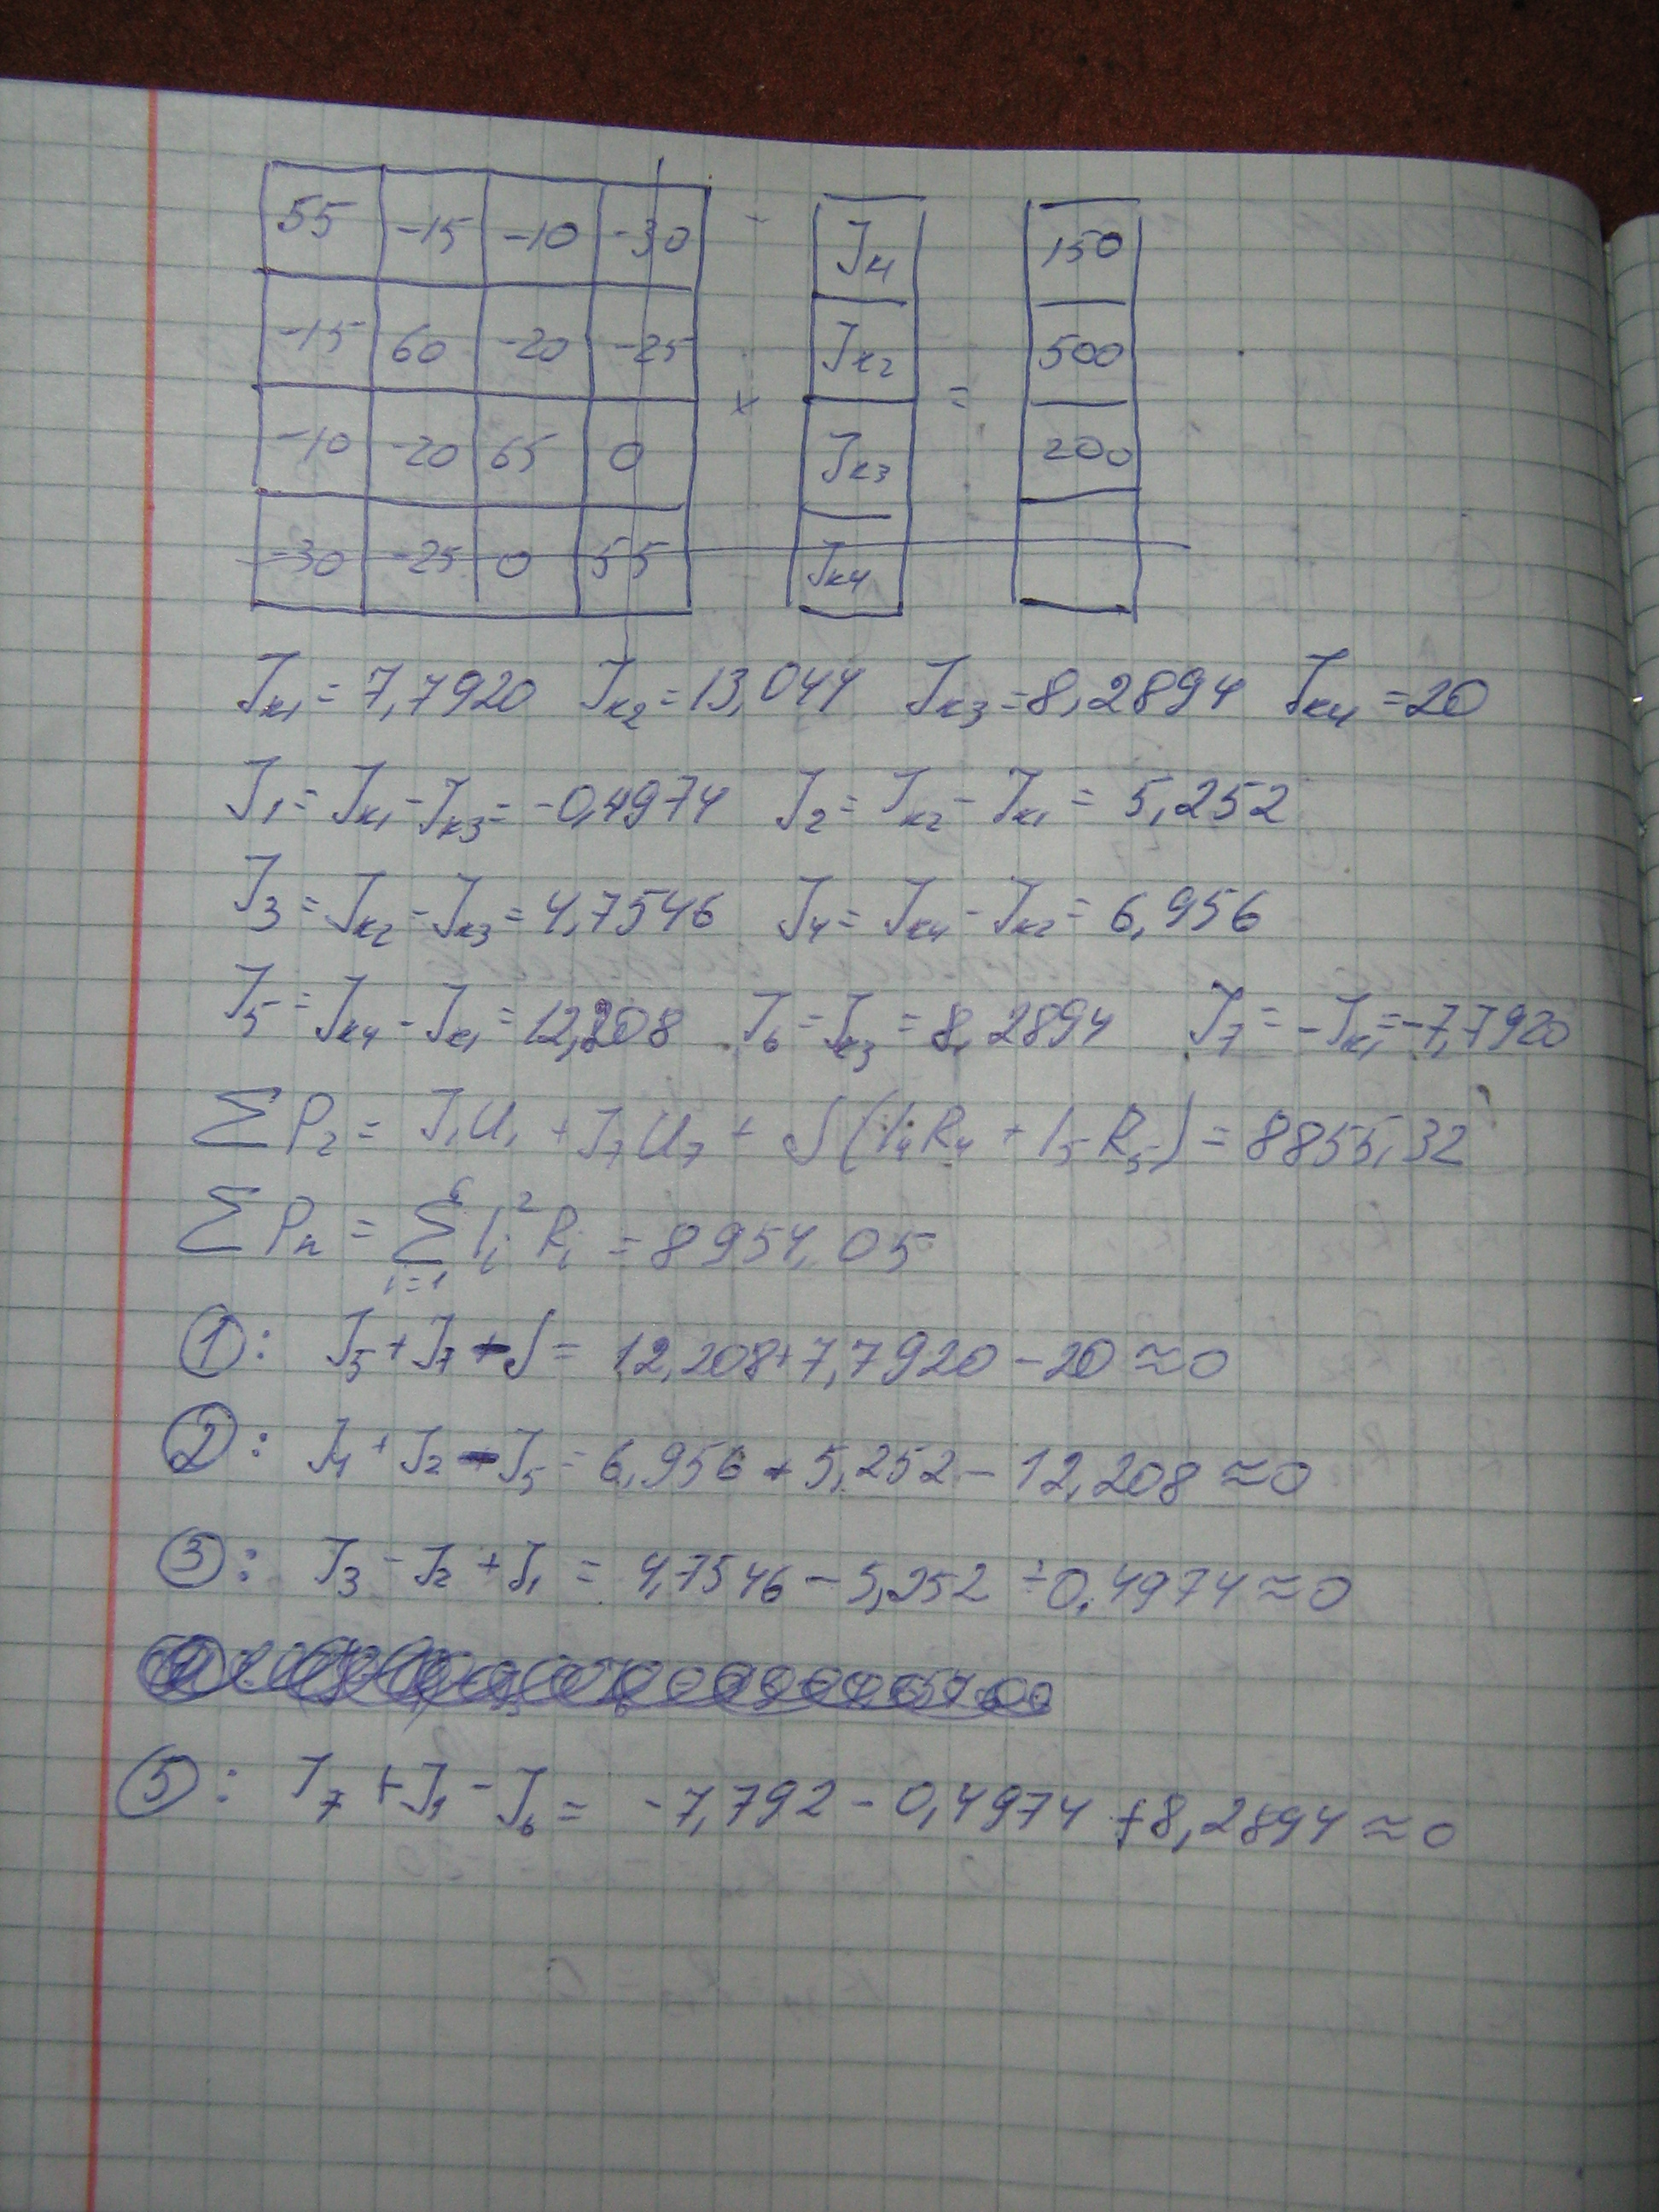 55 -15 -10 -30 Jк1 150
-15 60 -20 -25 × Jк2 = 500
-10 -20 65 0 Jк3 200
-30 -25 0 55 Jк4
Jк1 = 7,7920 Jк2 = 13,044 Jк3 = 8,2894 Jк4 = 20
J1 = Jк1 - Jк3 = -0,4974 J2 = Jк2 - Jк1 = 5,252
J3 = Jк2 - Jк3 = 4,7546 J4 = Jк4 - Jк2 = 6,956
J5 = Jк4 - Jк1 = 12,208 J6 = Jк3 = 8,2894 J7 = -Jк1 = -7,7920
∑ Pг = J1U1 + J7U7 + J(I4R4 + I5R5) = 8855,32
∑ Pп = ∑ i=1 6 Ii² Ri = 8954,05
①: J5 + J7 - J = 12,208 + 7,7920 - 20 ≈ 0
②: J4 + J2 - J5 = 6,956 + 5,252 - 12,208 ≈ 0
③: J3 - J2 + J1 = 4,7546 - 5,252 + 0,4974 ≈ 0
⑤: J7 + J1 - J6 = -7,792 - 0,4974 + 8,2894 ≈ 0